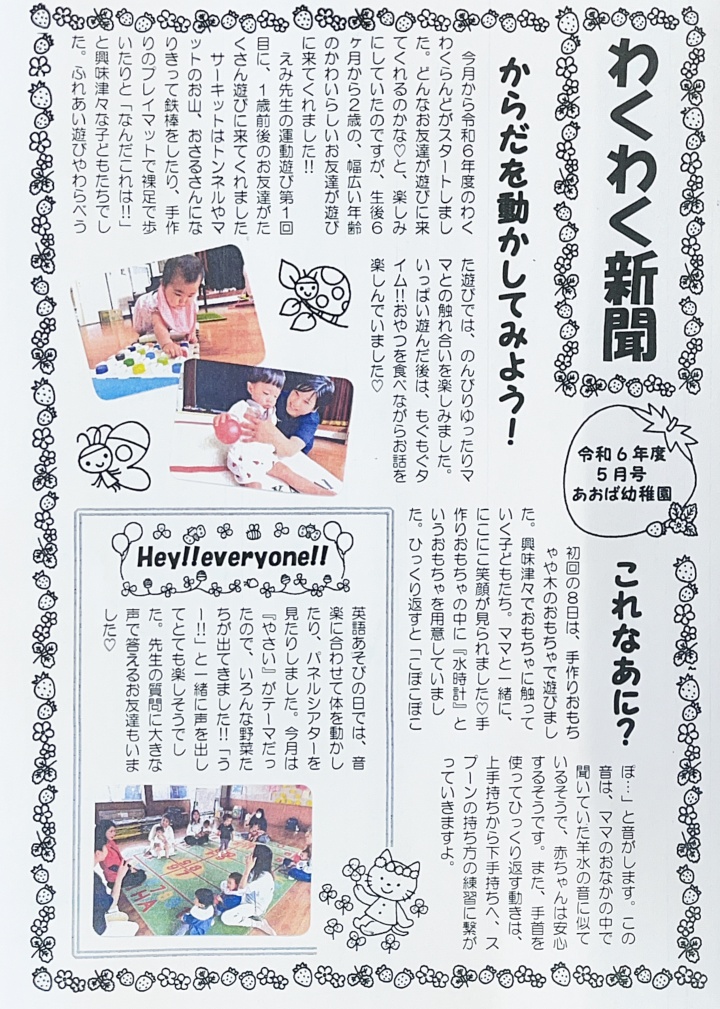 わくわく新聞
令和６年度
５月号
あおば幼稚園
からだを動かしてみよう！
今月から令和６年度のわく
わくらんどがスタートしまし
た。どんなお友達が遊びに来
てくれるのかな♡と、楽しみ
にしていたのですが、生後６
ヶ月から２歳の、幅広い年齢
のかわいらしいお友達が遊び
に来てくれました!!
えみ先生の運動遊び第１回
目に、１歳前後のお友達がた
くさん遊びに来てくれました
サーキットはトンネルやマ
ットのお山、おさるさんにな
りきって鉄棒をしたり、手作
りのプレイマットで裸足で歩
いたりと「なんだこれは!!」
と興味津々な子どもたちでし
た。ふれあい遊びやわらべう
た遊びでは、のんびりゆったりマ
マとの触れ合いを楽しみました。
いっぱい遊んだ後は、もぐもぐタ
イム!!おやつを食べながらお話を
楽しんでいました♡
これなあに？
初回の８日は、手作りおもち
ゃや木のおもちゃで遊びまし
た。興味津々でおもちゃに触って
いく子どもたち。ママと一緒に、
にこにこ笑顔が見られました♡手
作りおもちゃの中に『水時計』と
いうおもちゃを用意していまし
た。ひっくり返すと「こぽこぽこ
ぽ…」と音がします。この
音は、ママのおなかの中で
聞いていた羊水の音に似て
いるそうで、赤ちゃんは安心
するそうです。また、手首を
使ってひっくり返す動きは、
上手持ちから下手持ちへ、ス
プーンの持ち方の練習に繋が
っていきますよ。
Hey!!everyone!!
英語あそびの日では、音
楽に合わせて体を動かし
たり、パネルシアターを
見たりしました。今月は
『やさい』がテーマだっ
たので、いろんな野菜た
ちが出てきました!!「う
ー!!」と一緒に声を出し
てとても楽しそうでし
た。先生の質問に大きな
声で答えるお友達もいま
した♡